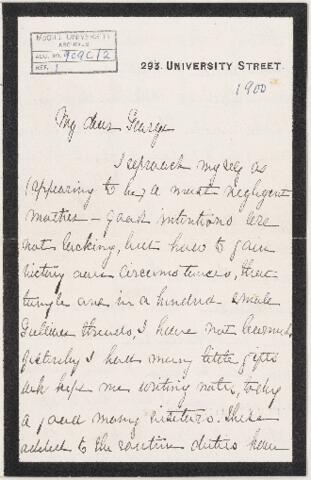 McGILL UNIVERSITY
ARCHIVES
ACC. NO. 909C/2
REF. 1
293. UNIVERSITY STREET.
1900
My dear George
I reproach myself as
(appearing to be) a most negligent
mother – good intentions are
not lacking, but how to gain
victory over circumstances, that
tangle one in a hundred small
Gulliver threads, I have not learned.
I had many little gifts
me writing notes, today
a good many visitors. These
added to the routine duties have